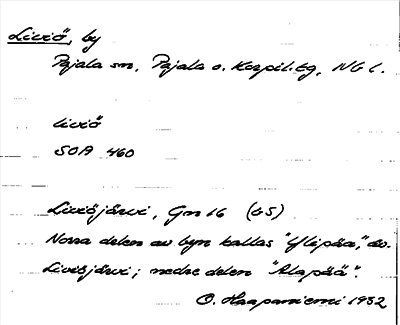 Liviö, by
Pajala sn, Pajala o. Korpil. tg, Nb l.
liviö
SOA 460
Liviöjärvi, Gn 16 (GS)
Norra delen av byn kallas "Ylipää", äv.
Liviöjärvi; nedre delen "Alapää".
O. Haapaniemi 1932